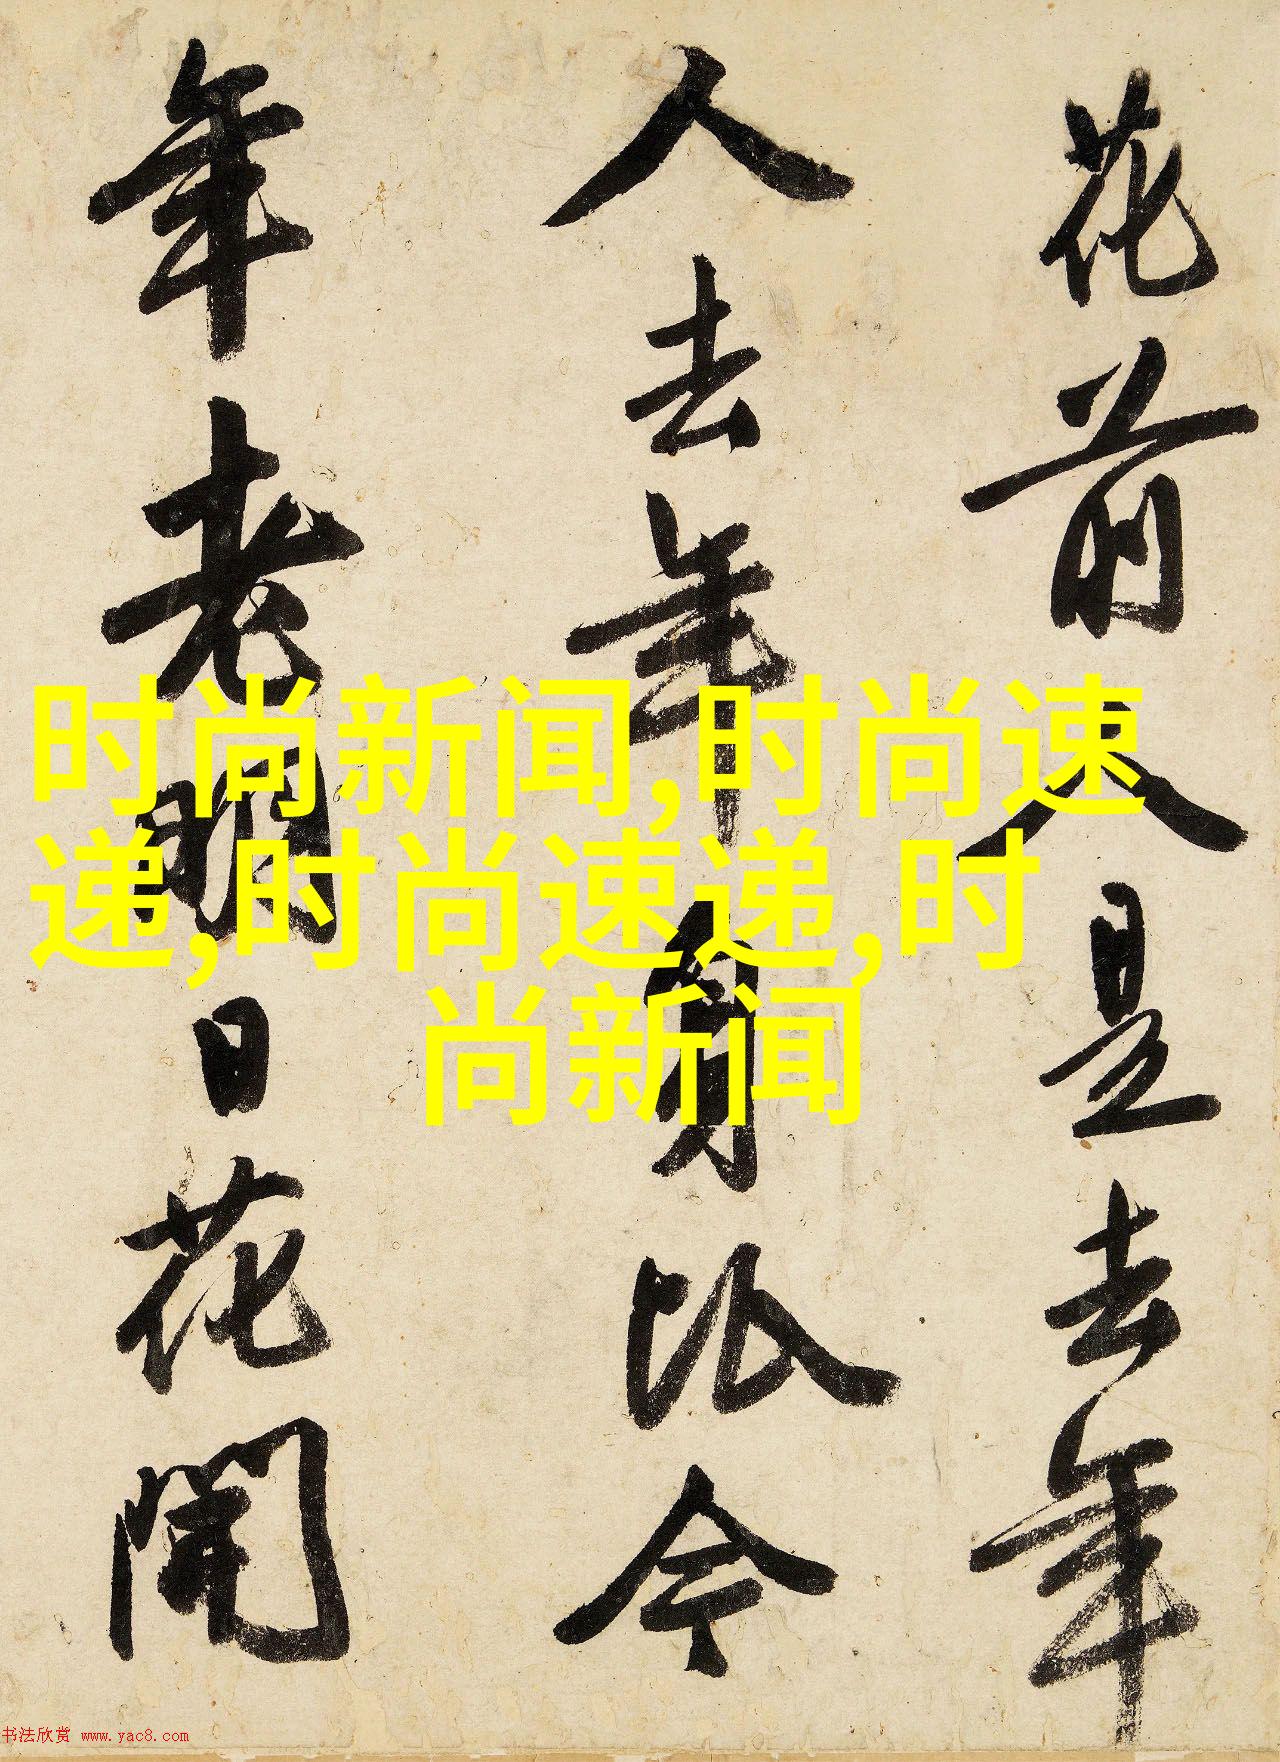 花前人是去年
人去年身比今
年老明日花開
时尚新闻,时尚速
递,时尚速递,时
尚新闻
书法欣赏 www.yac8.com